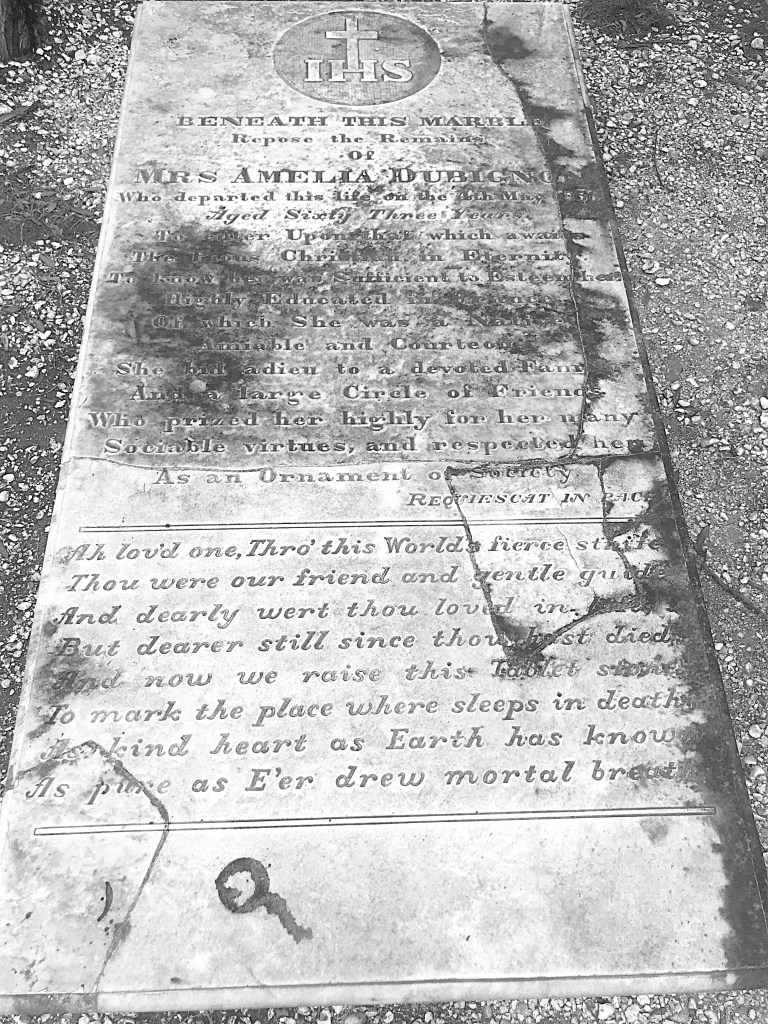 IHS
BENEATH THIS MARBLE
Repose the Remains
Of
MRS AMELIA DUBIGNON
Who departed this life on the 4th May
Aged Sixty Three Years
To Her Upon that which awaits
The Pious Christian in Eternity
To know her was Sufficient to Esteem her
Highly Educated in
Of which She was a Native
Amiable and Courteous
She bid adieu to a devoted Family
And a large Circle of Friends
Who prized her highly for her many
Sociable virtues, and respected her
As an Ornament of Society
REQUIESCAT IN PACE
Ah lov'd one, Thro' this World's fierce strife
Thou were our friend and gentle guide
And dearly wert thou loved in
But dearer still since thou hast died
And now we raise this Tablet
To mark the place where sleeps in death
As kind heart as Earth has known
As pure as E'er drew mortal breath